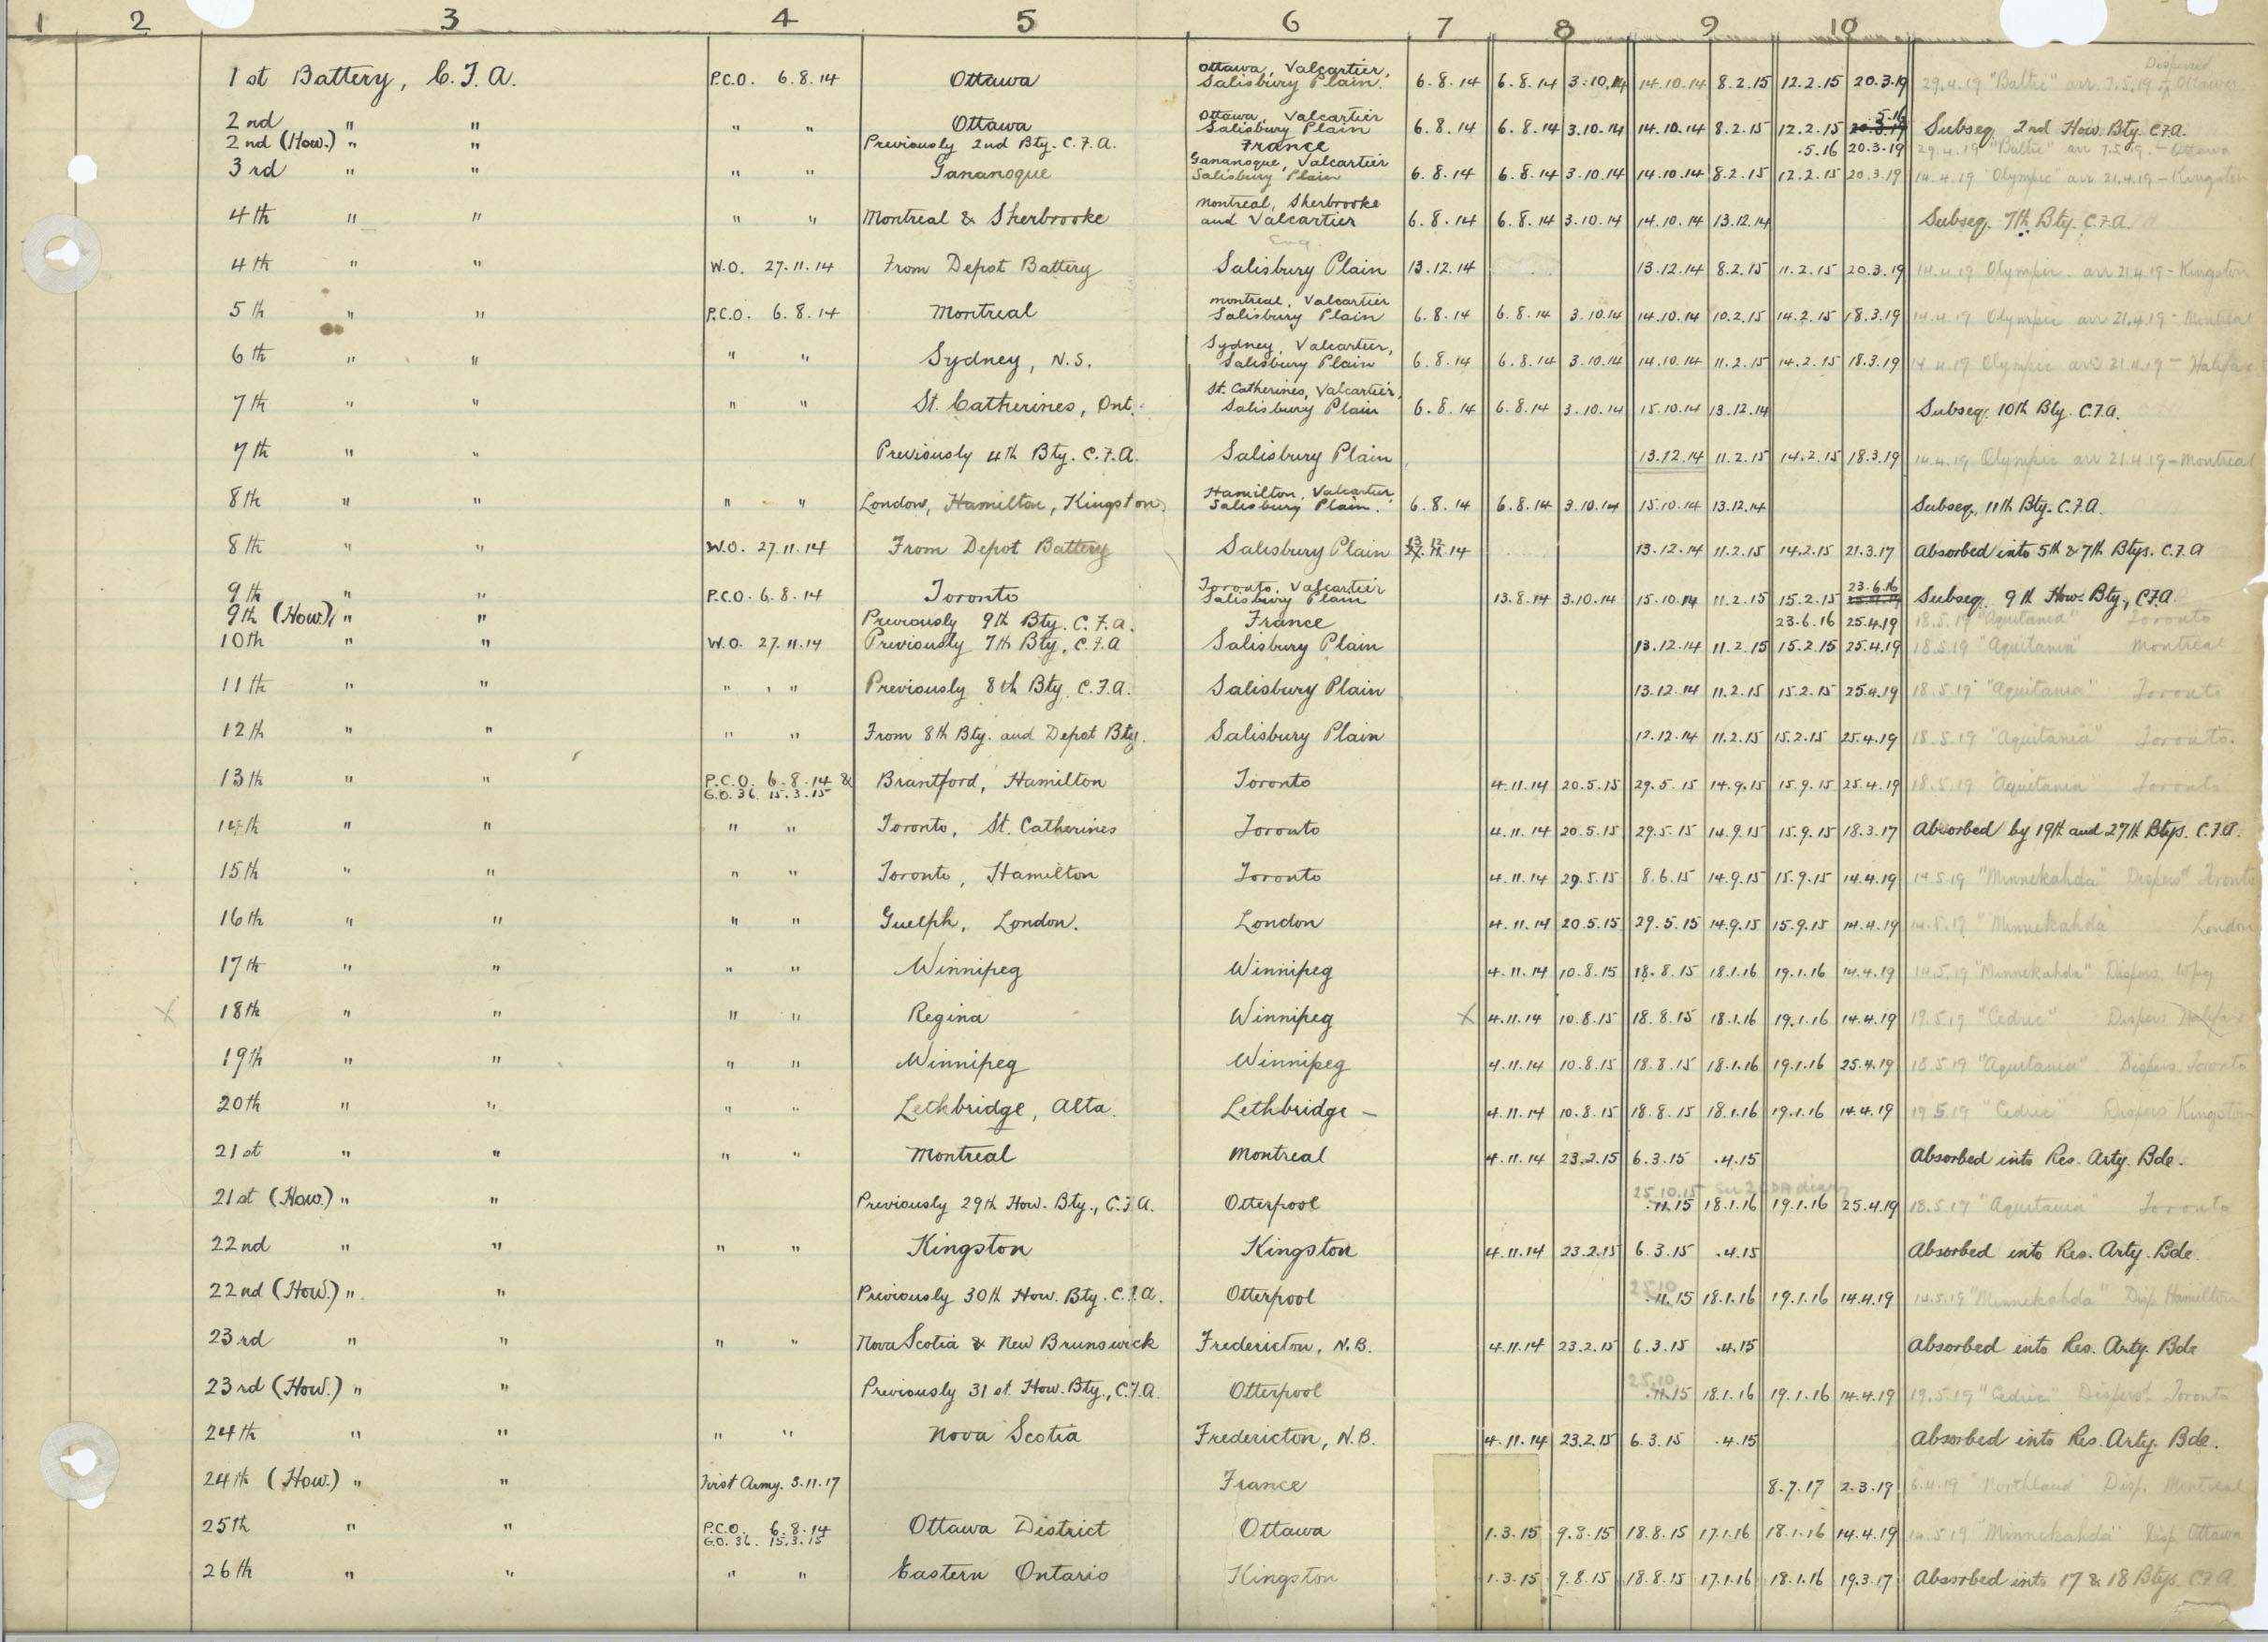 1 2 3 4 5 6 7 8 9 10
Dispersed
1st Battery, C.F.A. P.C.O. 6.8.14 Ottawa Ottawa, Valcartier, Salisbury Plain. 6.8.14 6.8.14 3.10.14 14.10.14 8.2.15 12.2.15 20.3.19 29.4.19 "Baltic" arr 7.5.19 - Ottawa
2nd " " " " Ottawa Ottawa, Valcartier Salisbury Plain 6.8.14 6.8.14 3.10.14 14.10.14 8.2.15 12.2.15 5.16 20.3.19 Subseq. 2nd How. Bty. C.F.A.
2nd (How.) " " Previously 2nd Bty. C.F.A. France .5.16 20.3.19 29.4.19 "Baltic" arr 7.5.19 - Ottawa
3rd " " " " Gananoque Gananoque, Valcartier Salisbury Plain 6.8.14 6.8.14 3.10.14 14.10.14 8.2.15 12.2.15 20.3.19 14.4.19 "Olympic" arr 21.4.19 - Kingston
4th " " " " Montreal & Sherbrooke Montreal, Sherbrooke and Valcartier 6.8.14 6.8.14 3.10.14 14.10.14 13.12.14 Subseq. 7th Bty. C.F.A.
Eng.
4th " " W.O. 27.11.14 From Depot Battery Salisbury Plain 13.12.14 13.12.14 8.2.15 11.2.15 20.3.19 14.4.19 Olympic arr 21.4.19 - Kingston
5th " " P.C.O. 6.8.14 Montreal Montreal, Valcartier Salisbury Plain 6.8.14 6.8.14 3.10.14 14.10.14 10.2.15 14.2.15 18.3.19 14.4.19 Olympic arr 21.4.19 - Montreal
6th " " " " Sydney, N.S. Sydney, Valcartier, Salisbury Plain 6.8.14 6.8.14 3.10.14 14.10.14 11.2.15 14.2.15 18.3.19 14.4.19 Olympic arr 21.4.19 - Halifax
7th " " " " St. Catherines, Ont. St. Catherines, Valcartier, Salisbury Plain 6.8.14 6.8.14 3.10.14 15.10.14 13.12.14 Subseq. 10th Bty. C.F.A.
7th " " Previously 4th Bty. C.F.A. Salisbury Plain 13.12.14 11.2.15 14.2.15 18.3.19 14.4.19 Olympic arr 21.4.19 - Montreal
8th " " " " London, Hamilton, Kingston. Hamilton, Valcartier, Salisbury Plain. 6.8.14 6.8.14 3.10.14 15.10.14 13.12.14 Subseq. 11th Bty. C.F.A.
8th " " W.O. 27.11.14 From Depot Battery Salisbury Plain 13.12.14 13.12.14 11.2.15 14.2.15 21.3.17 Absorbed into 5th & 7th Btys. C.F.A
9th " " P.C.O. 6.8.14 Toronto Toronto, Valcartier Salisbury Plain 13.8.14 3.10.14 15.10.14 11.2.15 15.2.15 23.6.16 Subseq. 9th How. Bty., C.F.A.
9th (How.) " " Previously 9th Bty. C.F.A. France 23.6.16 25.4.19 18.5.19 "Aquitania" Toronto
10th " " W.O. 27.11.14 Previously 7th Bty. C.F.A Salisbury Plain 13.12.14 11.2.15 15.2.15 25.4.19 18.5.19 "Aquitania" Montreal
11th " " " " Previously 8th Bty. C.F.A. Salisbury Plain 13.12.14 11.2.15 15.2.15 25.4.19 18.5.19 "Aquitania" Toronto
12th " " " " From 8th Bty. and Depot Bty. Salisbury Plain 12.12.14 11.2.15 15.2.15 25.4.19 18.5.19 "Aquitania" Toronto.
13th " " P.C.O. 6.8.14 & G.O. 36 15.3.15 Brantford, Hamilton Toronto 4.11.14 20.5.15 29.5.15 14.9.15 15.9.15 25.4.19 18.5.19 "Aquitania" Toronto
14th " " " " Toronto, St. Catherines Toronto 4.11.14 20.5.15 29.5.15 14.9.15 15.9.15 18.3.17 Absorbed by 19th and 27th Btys. C.F.A.
15th " " " " Toronto, Hamilton Toronto 4.11.14 29.5.15 8.6.15 14.9.15 15.9.15 14.4.19 14.5.19 "Minnekahda" Dispersd Toronto
16th " " " " Guelph, London. London 4.11.14 20.5.15 29.5.15 14.9.15 15.9.15 14.4.19 14.5.19 "Minnekahda" London
17th " " " " Winnipeg Winnipeg 4.11.14 10.8.15 18.8.15 18.1.16 19.1.16 14.4.19 14.5.19 "Minnekahda" Dispers. Wpg
X 18th " " " " Regina Winnipeg X 4.11.14 10.8.15 18.8.15 18.1.16 19.1.16 14.4.19 19.5.19 "Cedric" Dispers Halifax
19th " " " " Winnipeg Winnipeg 4.11.14 10.8.15 18.8.15 18.1.16 19.1.16 25.4.19 18.5.19 "Aquitania" Dispers. Toronto
20th " " " " Lethbridge, Alta. Lethbridge — 4.11.14 10.8.15 18.8.15 18.1.16 19.1.16 14.4.19 19.5.19 "Cedric" Dispers Kingston
21st " " " " Montreal Montreal 4.11.14 23.2.15 6.3.15 .4.15 Absorbed into Res. Arty. Bde.
25.10.15 See 2 CDA diary
21st (How.) " " Previously 29th How. Bty., C.F.A. Otterpool .11.15 18.1.16 19.1.16 25.4.19 18.5.19 "Aquitania" Toronto
22nd " " " " Kingston Kingston 4.11.14 23.2.15 6.3.15 .4.15 Absorbed into Res. Arty. Bde.
25.10
22nd (How.) " " Previously 30th How. Bty. C.F.A. Otterpool .11.15 18.1.16 19.1.16 14.4.19 14.5.19 "Minnekahda" Disp. Hamilton
23rd " " " " Nova Scotia & New Brunswick Fredericton, N.B. 4.11.14 23.2.15 6.3.15 .4.15 Absorbed into Res. Arty. Bde
25.10
23rd (How.) " " Previously 31st. How. Bty., C.F.A. Otterpool .11.15 18.1.16 19.1.16 14.4.19 19.5.19 "Cedric" Dispersd. Toronto
24th " " " " Nova Scotia Fredericton, N.B. 4.11.14 23.2.15 6.3.15 .4.15 Absorbed into Res. Arty. Bde.
24th (How.) " " First Army. 5.11.17 France 8.7.17 2.3.19 6.4.19 "Northland" Disp. Montreal
25th " " P.C.O. 6.8.14 G.O. 36. 15.3.15 Ottawa District Ottawa 1.3.15 9.8.15 18.8.15 17.1.16 18.1.16 14.4.19 14.5.19 "Minnekahda" Disp. Ottawa
26th " " " " Eastern Ontario Kingston 1.3.15 9.8.15 18.8.15 17.1.16 18.1.16 19.3.17 Absorbed into 17 & 18 Btys. C.F.A